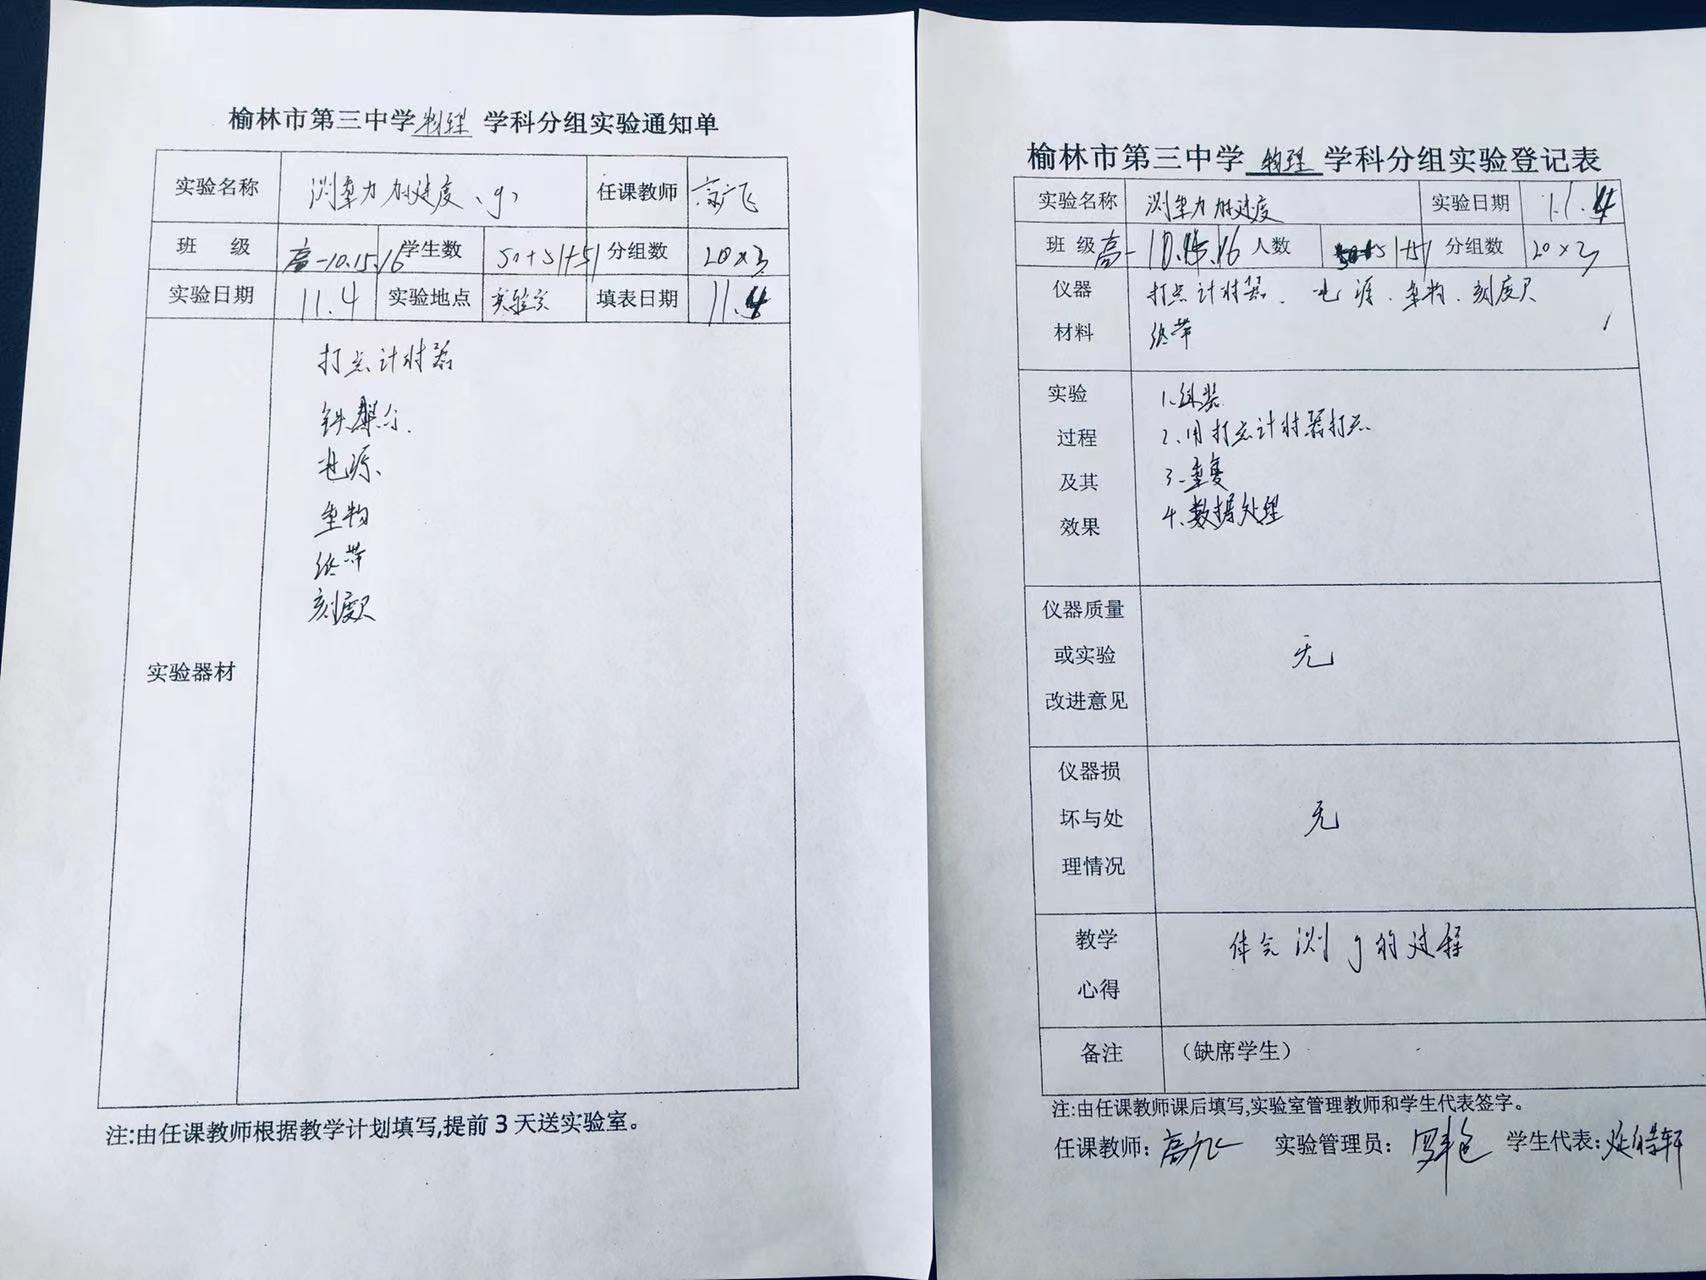 榆林市第三中学物理 学科分组实验通知单
实验名称 测重力加速度、g、 任课教师
班 级 高一10.15.16 学生数 50+51+51 分组数 20×3
实验日期 11.4 实验地点 实验室 填表日期 11.4
实验器材
打点计时器
铁架台.
电源、
重物
纸带
刻度尺
注:由任课教师根据教学计划填写,提前 3 天送实验室。
榆林市第三中学 物理 学科分组实验登记表
实验名称 测重力加速度 实验日期 11.4
班 级 高一10.15.16 人数 51+51 分组数 20×3
仪器材料 打点计时器、电源、重物、刻度尺
纸带
实验过程及其效果
1、组装
2、用打点计时器打点
3、重复
4、数据处理
仪器质量或实验改进意见 无
仪器损坏与处理情况 无
教学心得 体会测g的过程
备注 （缺席学生）
注:由任课教师课后填写,实验室管理教师和学生代表签字。
任课教师: 实验管理员: 学生代表: